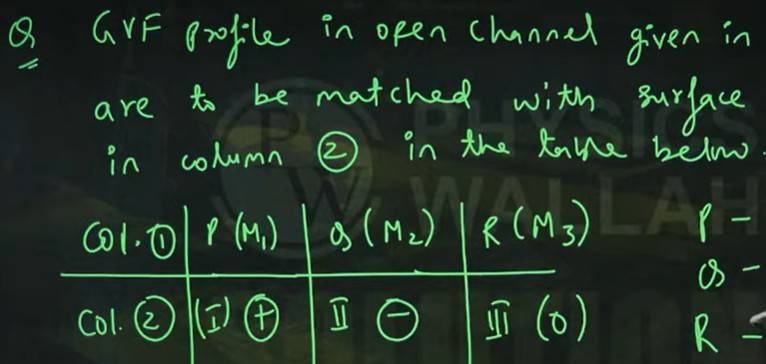 Q GVF profile in open channel given in
are to be matched with surface
in column ② in the table below.
Col. ① P (M₁) Q (M₂) R (M₃) P -
Q -
Col. ② (I) ⊕ II ⊖ III (0) R -
PHYSICS
WALLAH